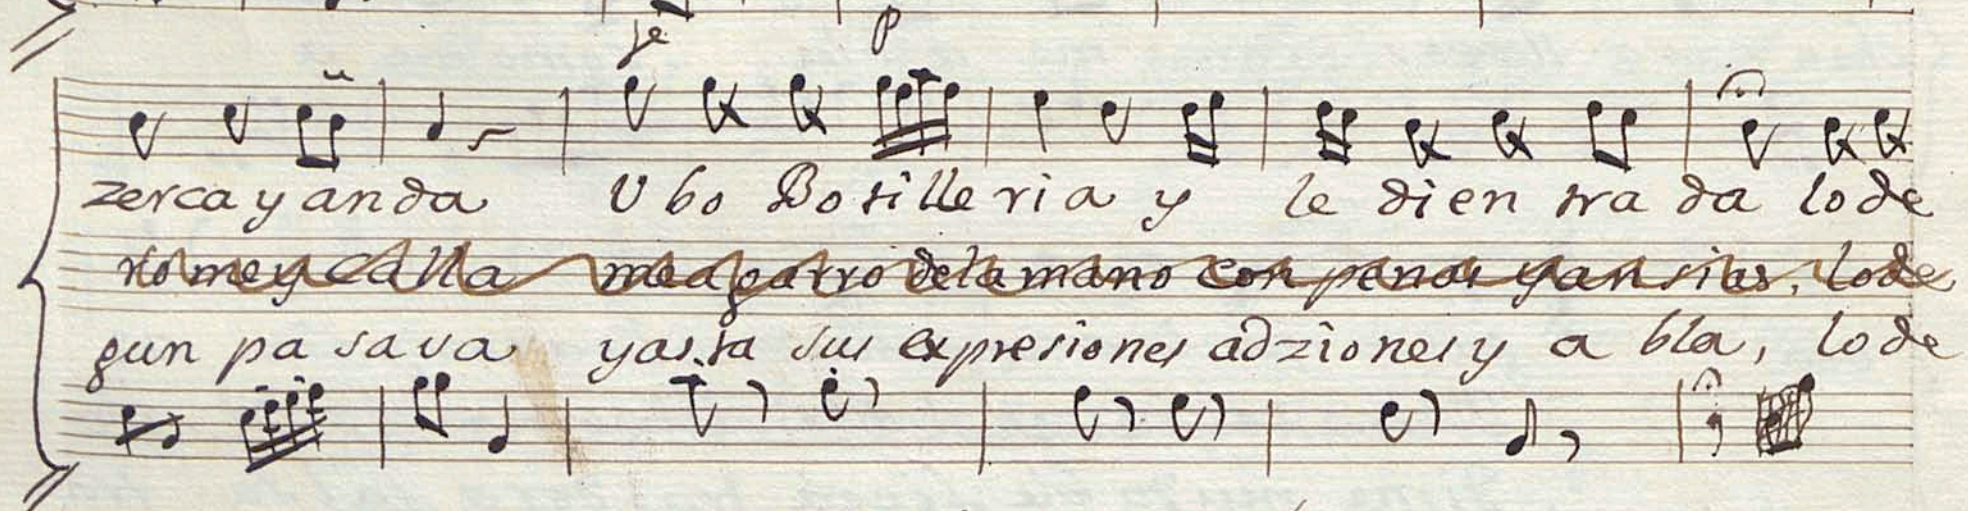 fe p
zerca y anda Ubo Botilleria y le di entrada lo de
rio me y calla me agarro de la mano con penas y ansias, lo de
gun pasava yasta sus expresiones adziones y abla, lo de